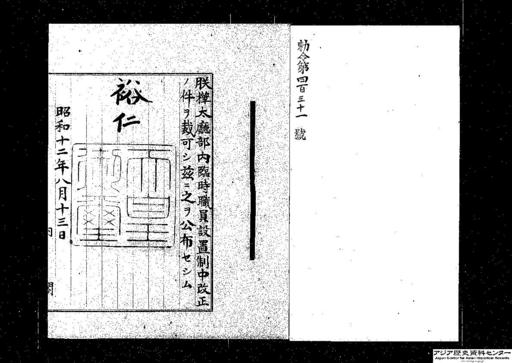 勅令第四百三十一號
朕樺太廳部内臨時職員設置制中改正
ノ件ヲ裁可シ茲ニ之ヲ公布セシム
裕仁
天皇御璽
昭和十二年八月十三日
内閣
アジア歴史資料センター
Japan Center for Asian Historical Records